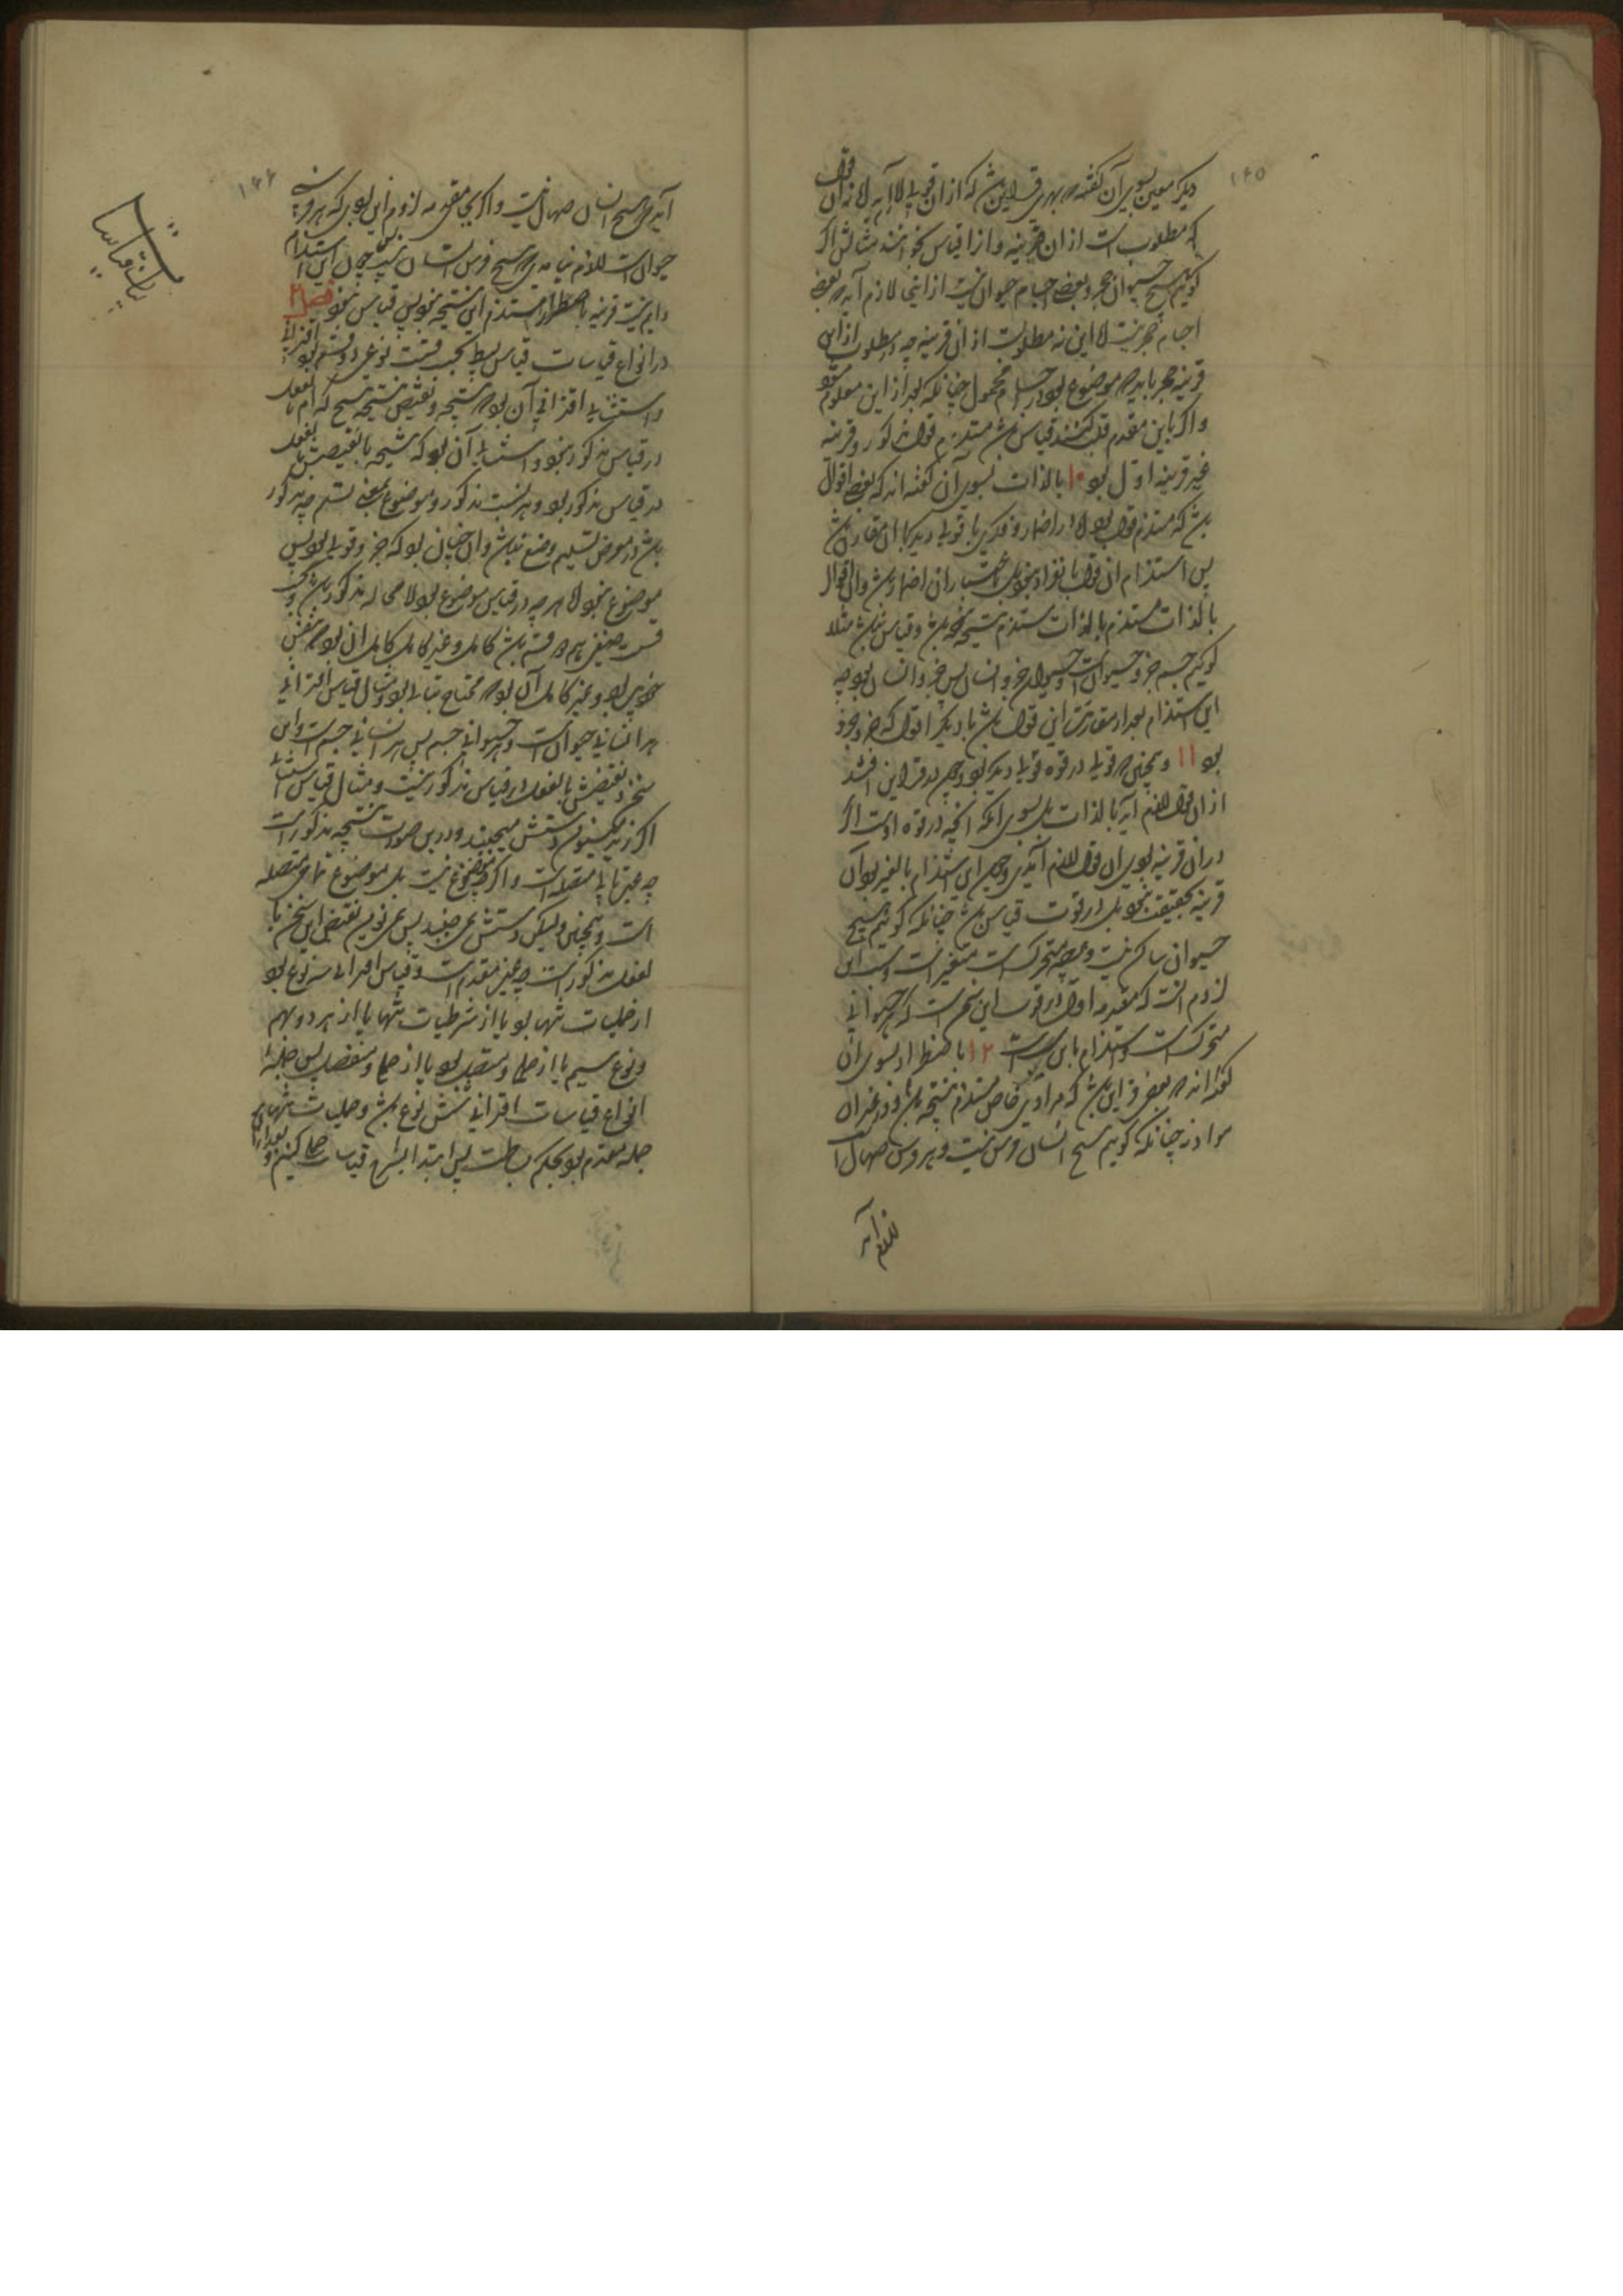 ۱۶۵
دیگر معین بسوی آن گفتند که بهری قراین باشد که از آن قولی لازم آید لا نه آن قول
که مطلوب است از آن قرینه و از آن قیاس نخوانند مثالش اگر
گوییم هیچ حیوان حجر و بعضی اجسام حیوان نیست از اینجا لازم آید که بعضی
اجسام حجر نیست لا این نه مطلوبست از آن قرینه چه مطلوب از این
قرینه حجر باید که موضوع بود و جسم محمول چنانکه بعد از این معلوم شود
و اگر باین مقدم قلب کنند قیاس باشد مستلزم قول مذکور و قرینه
غیر قرینه اول بود ۱۰ بالذات بسوی آن گفته اند که بعضی اقوال
باشد که مستلزم قولی بود لا در اضمار و فکری یا قولی دیگر با آن مقارن باشد
پس استلزام آن قول بانفراد نبود بل باعتبار آن اضمار باشد و آن اقوال
بالذات مستلزم بالذات مستلزم نتیجه نباشد و قیاس نباشد مثلا
گوییم جسم جزو حیوانست و حیوان جزو انسان پس جزو انسان بود چه
این استلزام بعد از مقارنت این قول باشد با دیگر اقوال که جزو جزو جزو
بود ۱۱ و همچنین قولی در قوه قولی دیگر بود و چون در قراین افتد
از آن قول لازم آید نه بالذات بل بسوی آنکه آنچه در قوه اوست اگر
در آن قرینه بودی آن قول لازم آیدی و چون این استلزام بالغیر بود آن
قرینه بحقیقت نبود بل در قوت قیاس باشد چنانکه گوییم هیچ
حیوان ساکن نیست و هر چه متحرک است متغیر است و سبب این
لزوم آنست که مقدمه اول در قوت این سخن است که هر حیوانی
متحرکست و استلزام باین سبب است ۱۲ باضطرار بسوی آن
گفته اند که بعضی قراین باشد که در مادتی خاص مستلزم نتیجه باشد و در غیر آن
مواد نه چنانکه گوییم هیچ انسان فرس نیست و هر فرس صهال است
لازم آید
۱۶۶
آید که هیچ انسان صهال نیست و اگر بجای مقدمه دوم این بودی که هر فرسی
حیوان است لازم نیامدی که هیچ فرس انسان نیست چون این استلزام
دایم نیست قرینه باضطرار مستلزم این نتیجه نبود پس قیاس نبود فصل ۲
در انواع قیاسات قیاس بسیط بحسب قسمت نوعی دو قسم بود اقترانی
و استثنایی اقترانی آن بود که نتیجه و نقیض نتیجه هیچ کدام بالفعل
در قیاس مذکور نبود و استثنایی آن بود که نتیجه یا نقیضش بالفعل
در قیاس مذکور بود و هر نسبت مذکور و موضوع بمعنی تسلیم چه مذکور
باشد در معرض تسلیم وضع نباشد و آن چنان بود که جزو قولی بود پس
موضوع نبود لا هر چه در قیاس موضوع بود لا محاله مذکور باشد و بحسب
قسمت صنفی هم دو قسم باشد کامل و غیر کامل کامل آن بود که بنفس
خویش بود و غیر کامل آن بود که محتاج ببیان بود مثال قیاس اقترانی
هر انسانی حیوان است و هر حیوانی جسم پس هر انسانی جسم است و این
سخن و نقیضش بالفعل در قیاس مذکور نیست و مثال قیاس استثنایی
اگر زید می نویسد دستش می جنبد و درین صورت نتیجه مذکور است
چه عین تالی متصله است و اگر چه موضوع نیست بل موضوع تمامی متصله
است و همچنین ولیکن دستش نمی جنبد پس نمی نویسد نقیض این سخن با
لفعل مذکور است چه عین مقدم است و قیاس اقترانی سه نوع بود
از حملیات تنها بود یا از شرطیات تنها یا از هر دو بهم
و نوع سیم یا از حملی و متصل بود یا از حملی و منفصل پس جمله
انواع قیاسات اقترانی شش نوع باشد و حملیات تنها بر
جمله مقدم بود بحکم بساطت پس ابتدا بشرح قیاسات حملی کنیم و بعد از آن
بیان قیاسات